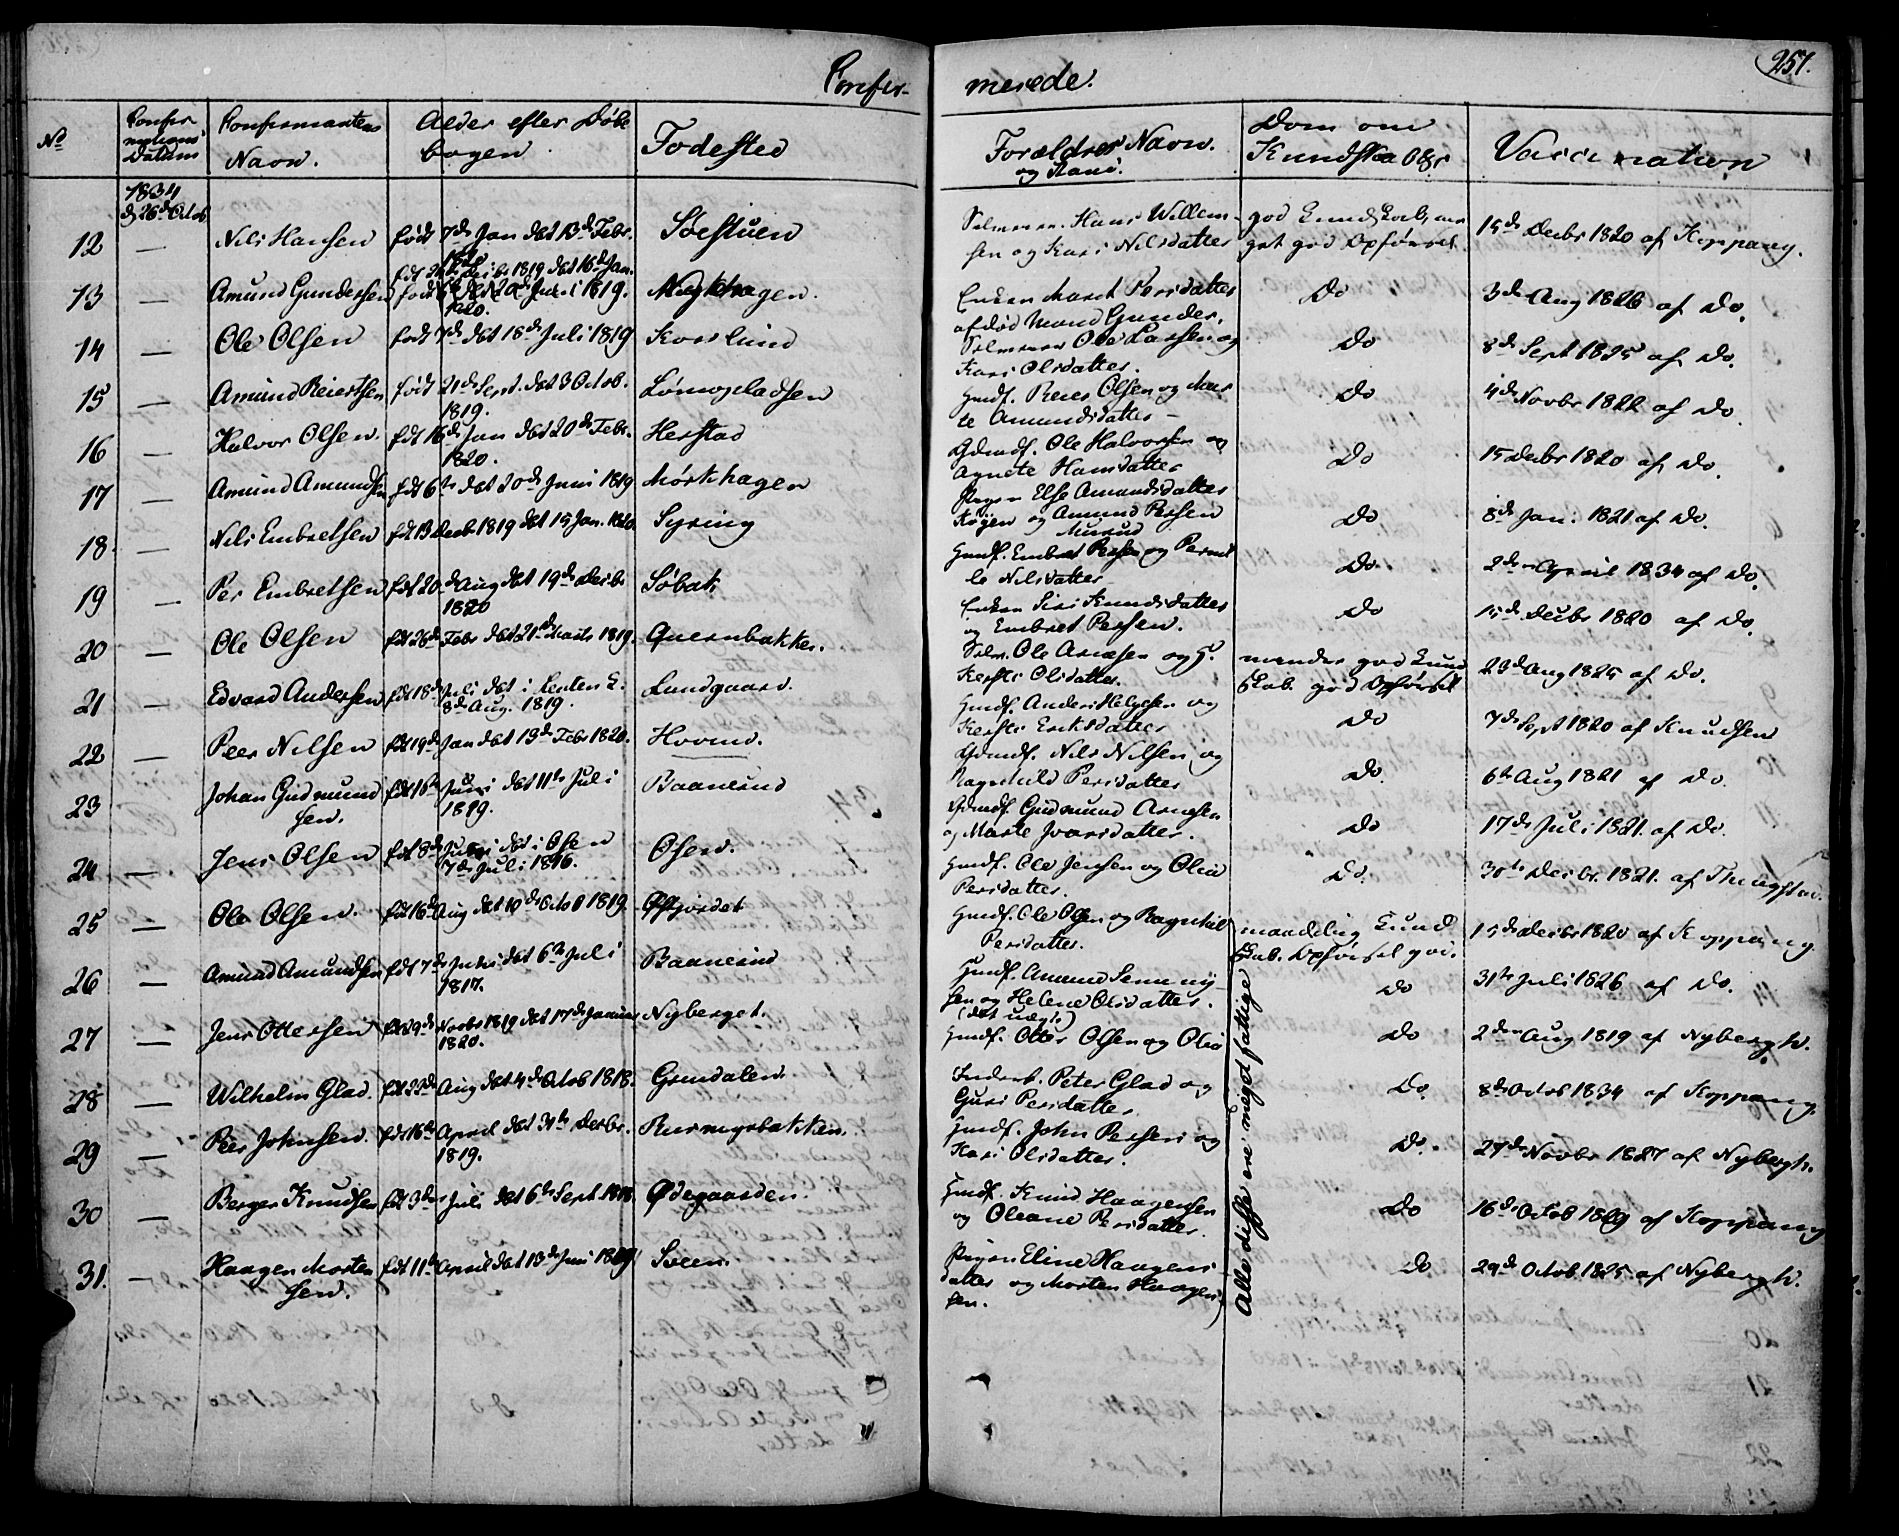 257.
Confir-
merede.
No
Confir
mations
Datum
Confirmantens
Navn.
Alder efter Døbe
bogen.
Fødested
Forældres Navn.
og Stand.
Dom om
Kundskab &c
Vaccination
1834
d 26de Octob
12 — Nils Hansen født 7de Jan døt 13de Febr. 1820 Søestuen Selveier Hans Willem-
sen og Kari Nilsdatter god Kundskab, me
get god Opførsel. 15de Decbr 1820 af Koppang.
13 — Amund Gundersen fdt Decbr 1819 døt 16de Jan.
1820. hagen. Enken Marit Persdatter
afdød Mand Gunder. Do 3de Aug 1826 af Do.
14 — Ole Olsen født 7de døt 18de Juli 1819 Korslund Selveier Ole Larsen og
Kari Olsdatter. Do 8de Sept 1825 af Do.
15 — Amund Reiersen født 21de Sept. døt 3 Octob.
1819. Lømopladsen Huusf. Reier Olsen og Mar
te Amundsdatter — Do 4de Novbr 1822 af Do.
16 — Halvor Olsen. fdt 16de Jan døt 20de Febr.
1820. Herstad Gdmdf. Ole Halvorsen og
Agnete Hansdatter Do 15 Decbr 1820 af Do.
17 — Amund Amundsen fdt 6te døt 20de Juni 1819 Mørkhagen Pigen Else Amundsdatter
og Amund Persen
Do 8de Jan. 1821 af Do.
18. — Nils Embretsen fdt 13 Decb 1819 døt 15 Jan. 1820. Syring Huusf. Embret Persen og Pernil
le Nilsdatter Do 2den April 1834 af Do.
19 — Per Embretsen fdt 20de Aug døt 19de Decbr
1820 Søbak Enken Siri Knudsdatter
og Embret Persen. Do 15de Decbr 1820 af Do.
20 — Ole Olsen fdt 26de Febr døt 21de Marts 1819. Quernbakken. Selv. Ole Arnesen og
Kersti Olsdatter. mindre god Kund
skab. god Opførsel 23de Aug 1825 af Do.
21 — Edvard Andersen fdt 18de Juli døt i Renten K.
8de Aug. 1819. Lundgaard. Huusf. Anders Helgesen og
Kersti Eriksdatter Do 7de Sept 1820 af Knudsen
22 — Peer Nilsen fdt 19de Jan døt 13de Febr 1820. Hovind. Gdmdf. Nils Nilsen og
Ragnhild Persdatter Do. 6te Aug 1821 af Do.
23 — Johan Gudmund
sen. fdt 16de Juni døt 11te Juli
1819. Baanerud Gdmdf. Gudmund Arnesen
og Marte Ivarsdatter. Do 17de Juli 1821. af Do.
24 — Jens Olsen fdt 8de Juni døt i Osen
7de Juli 1816. Osen. Huusf. Ole Jensen og Olia
Persdatter. Do. 30te Decbr. 1821. af Thengstad.
25 — Ole Olsen. fdt 16de Aug døt 10de Octob 1819. Østfjordet Huusf. Ole Olsen og Ragnhil
Persdatter. maadelig Kund
skab. Opførsel god. 15de Decbr 1820 af Koppang
26 — Amund Amundsen fdt 7de Juni døt 6te Juli
1817. Baanerud Huusf. Amund Semmig-
sen og Helene Olsdatter. Do 31te Juli 1826 af Do.
27 — Jens Ottersen fdt 29de Novbr 1819 døt 17de Januar
1820. Nyberget. (døt uægte)
Huusf. Otter Olsen og Olia Do 2den Aug 1819 af Nybergh.
28 — Wilhelm Glad. fdt 22de Aug døt 4de Octob 1818. Grundalen. Inderst. Peter Glad og
Guri Persdatter Do. 8de Octob 1834 af Koppang.
29 — Peer Johnsen. fdt 16de April døt 31te Decbr.
1819. Rusmyrbakken. Huusf. John Persen og
Kari Olsdatter. Do. 27de Novbr 1827 af Nybergh.
30 — Berger Knudsen fdt 3de Juli døt 6te Sept 1818 Ødegaarden. Huusf. Knud Haagensen
og Oleane Persdatter. Do 16de Octob 1819 af Koppang
31. — Haagen Morten
sen. fdt 11te April døt 13de Juni 1819 Sveen Pigen Eline Haagens
datter og Morten Haagen
sen. Do 29de Octob. 1825 af Nybergh.
Alle disse ere meget fattige